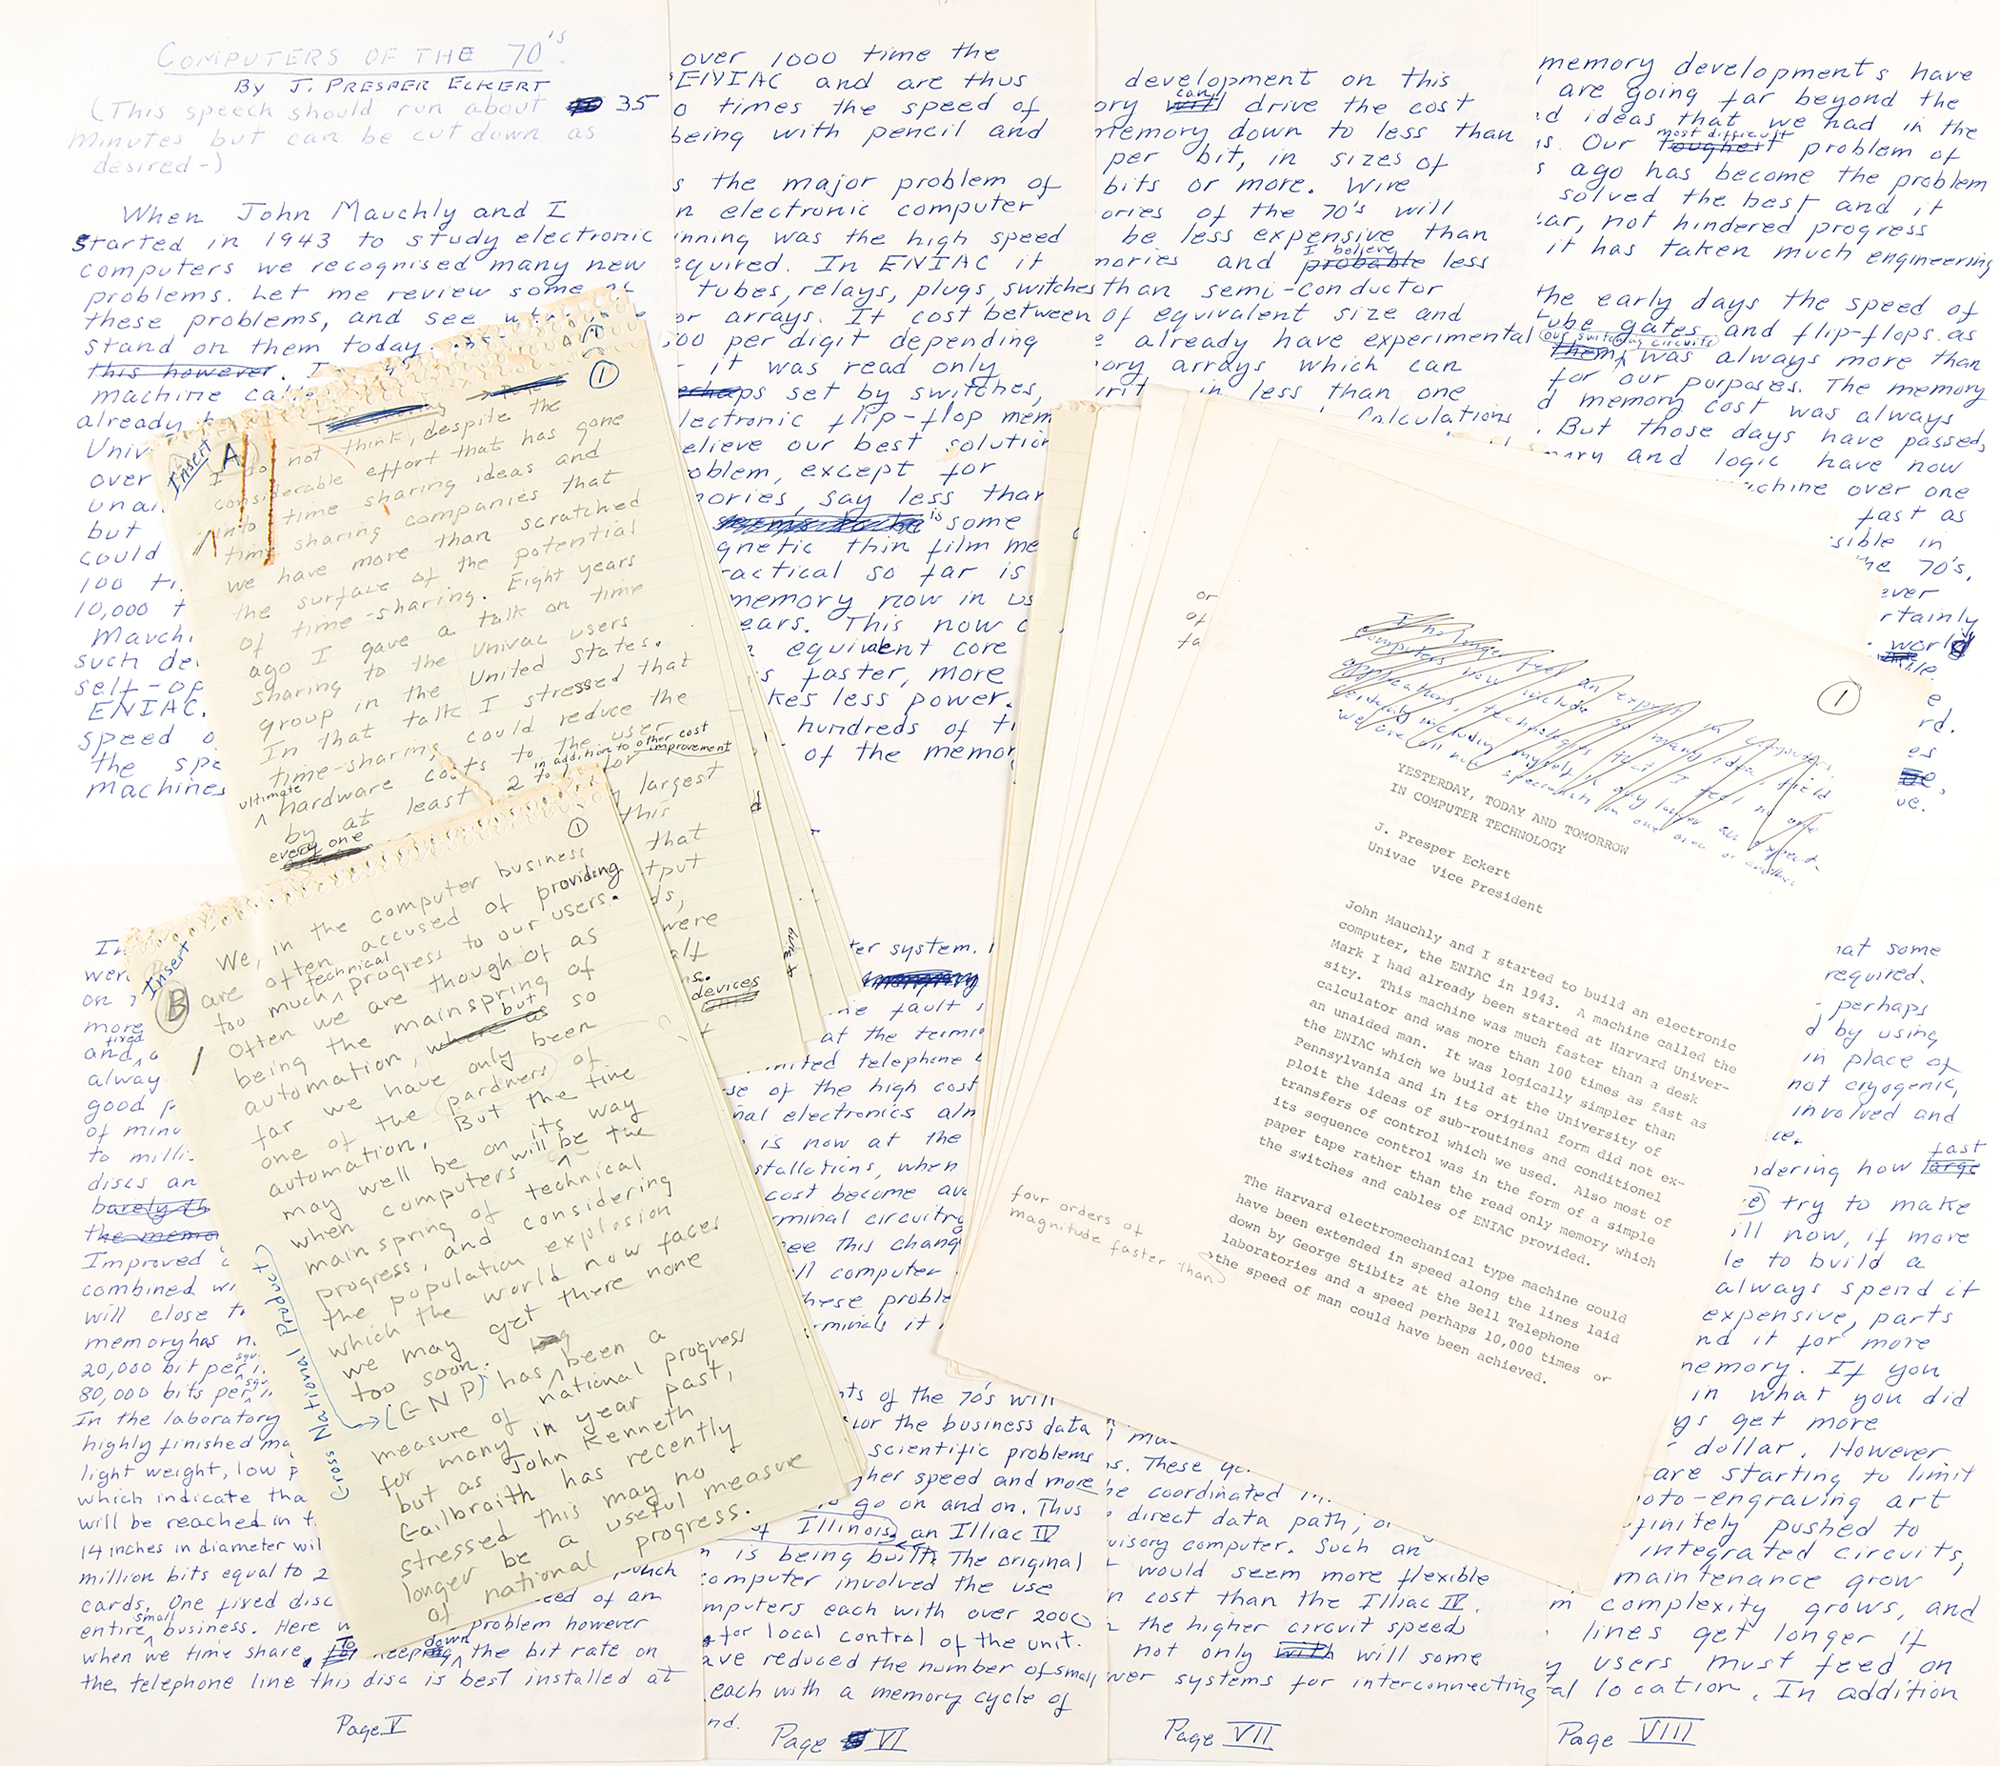 COMPUTERS OF THE 70's.
BY J. PRESPER ECKERT
(This speech should run about 35
minutes but can be cut down as
desired-)
When John Mauchly and I
started in 1943 to study electronic
computers we recognised many new
problems. Let me review some of
these problems, and see
stand on them today.
this however. I
machine
already
Univ
over
una
but
could
100 ti
10,000 t
Mauch
such de
self-op
ENIAC.
speed o
the spe
machines
over 1000 time the
ENIAC and are thus
o times the speed of
being with pencil and
s the major problem of
n electronic computer
inning was the high speed
equired. In ENIAC it
tubes, relays, plugs, switches
or arrays. It cost between
500 per digit depending
- it was read only
perhaps set by switches,
lectronic flip-flop mem
elieve our best solution
oblem, except for
mories, say less than
is some
gnetic thin film me
ractical so far is
memory now in us
ears. This now c
equivalent core
s faster, more
kes less power.
hundreds of ti
of the memor
development on this
ory can drive the cost
memory down to less than
per bit, in sizes of
bits or more. Wire
ories of the 70's will
be less expensive than
I believe
mories and probable less
than semi-conductor
of equivalent size and
e already have experimental
ory arrays which can
writ in less than one
Calculations
memory developments have
are going far beyond the
d ideas that we had in the
most difficult
is. Our toughest problem of
s ago has become the problem
solved the best and it
ar, not hindered progress
it has taken much engineering
the early days the speed of
tube gates and flip-flops as
our switching circuits
them was always more than
for our purposes. The memory
d memory cost was always
. But those days have passed,
mory and logic have now
machine over one
fast as
sible in
he 70's,
ever
rtainly
world
Insert
A
1
I do not think, despite the
considerable effort that has gone
into time sharing ideas and
time sharing companies that
we have more than scratched
the surface of the potential
of time-sharing. Eight years
ago I gave a talk on time
sharing to the Univac users
group in the United States.
In that talk I stressed that
time-sharing could reduce the
ultimate hardware costs to the user
in addition to other cost improvement
by at least 2 to 1 for
every one
largest
this
that
tput
ds,
were
alf
ns.
devices
Insert
B
1
We, in the computer business
are often accused of providing
technical
too much progress to our users.
Often we are though of as
being the mainspring of
automation, where as but so
far we have only been
one of the pardners of
automation. But the time
may well be on its way
when computers will be the
mainspring of technical
progress, and considering
the population explosion
which the world now faces
we may get there none
too soon.
Gross National Product
(GNP) has been a
measure of national progress
for many in year past,
but as John Kenneth
Gailbraith has recently
stressed this may no
longer be a useful measure
of national progress.
or
of
fa
1
YESTERDAY, TODAY AND TOMORROW
IN COMPUTER TECHNOLOGY
J. Presper Eckert
Univac Vice President
John Mauchly and I started to build an electronic
computer, the ENIAC in 1943. A machine called the
Mark I had already been started at Harvard Univer-
sity. This machine was much faster than a desk
calculator and was more than 100 times as fast as
an unaided man. It was logically simpler than
the ENIAC which we build at the University of
Pennsylvania and in its original form did not ex-
ploit the ideas of sub-routines and conditionel
transfers of control which we used. Also most of
its sequence control was in the form of a simple
paper tape rather than the read only memory which
the switches and cables of ENIAC provided.
The Harvard electromechanical type machine could
have been extended in speed along the lines laid
down by George Stibitz at the Bell Telephone
laboratories and a speed perhaps 10,000 times or
the speed of man could have been achieved.
four orders of
magnitude faster than
In
were
on
more
fired
and,
alway
good p
of minu
to milli
discs an
barely th
the memo
Improved
combined wi
will close t
memory has n
20,000 bit per
80,000 bits per
In the laboratory
highly finished ma
light weight, low p
which indicate tha
will be reached in t
14 inches in diameter wil
million bits equal to 2 punch
cards. One fixed disc need of an
entire small business. Here problem however
when we time share. To keep down the bit rate on
the telephone line this disc is best installed at
Page V
ter system.
ne fault
at the termi
mited telephone
se of the high cost
nal electronics alm
is now at the
stallations, when
cost become ava
rminal circuitry
ee this chang
ll computer
hese proble
rminals it
ts of the 70's will
for the business data
scientific problems
her speed and more
go on and on. Thus
of Illinois, an Illiac IV
is being built. The original
computer involved the use
mputers each with over 2000
for local control of the unit.
ave reduced the number of small
each with a memory cycle of
nd.
Page VI
s. These
be coordinated
direct data path, o
visory computer. Such an
would seem more flexible
n cost than the Illiac IV.
the higher circuit speed
not only with will some
wer systems for interconnecting
Page VII
hat some
required.
- perhaps
d by using
in place of
not cryogenic,
involved and
ce.
fast
dering how large
try to make
ill now, if more
le to build a
always spend it
expensive, parts
nd it for more
memory. If you
in what you did
ys get more
dollar. However
are starting to limit
oto-engraving art
finitely pushed to
integrated circuits,
maintenance grow
m complexity grows, and
lines get longer if
y users must feed on
al location. In addition
Page VIII